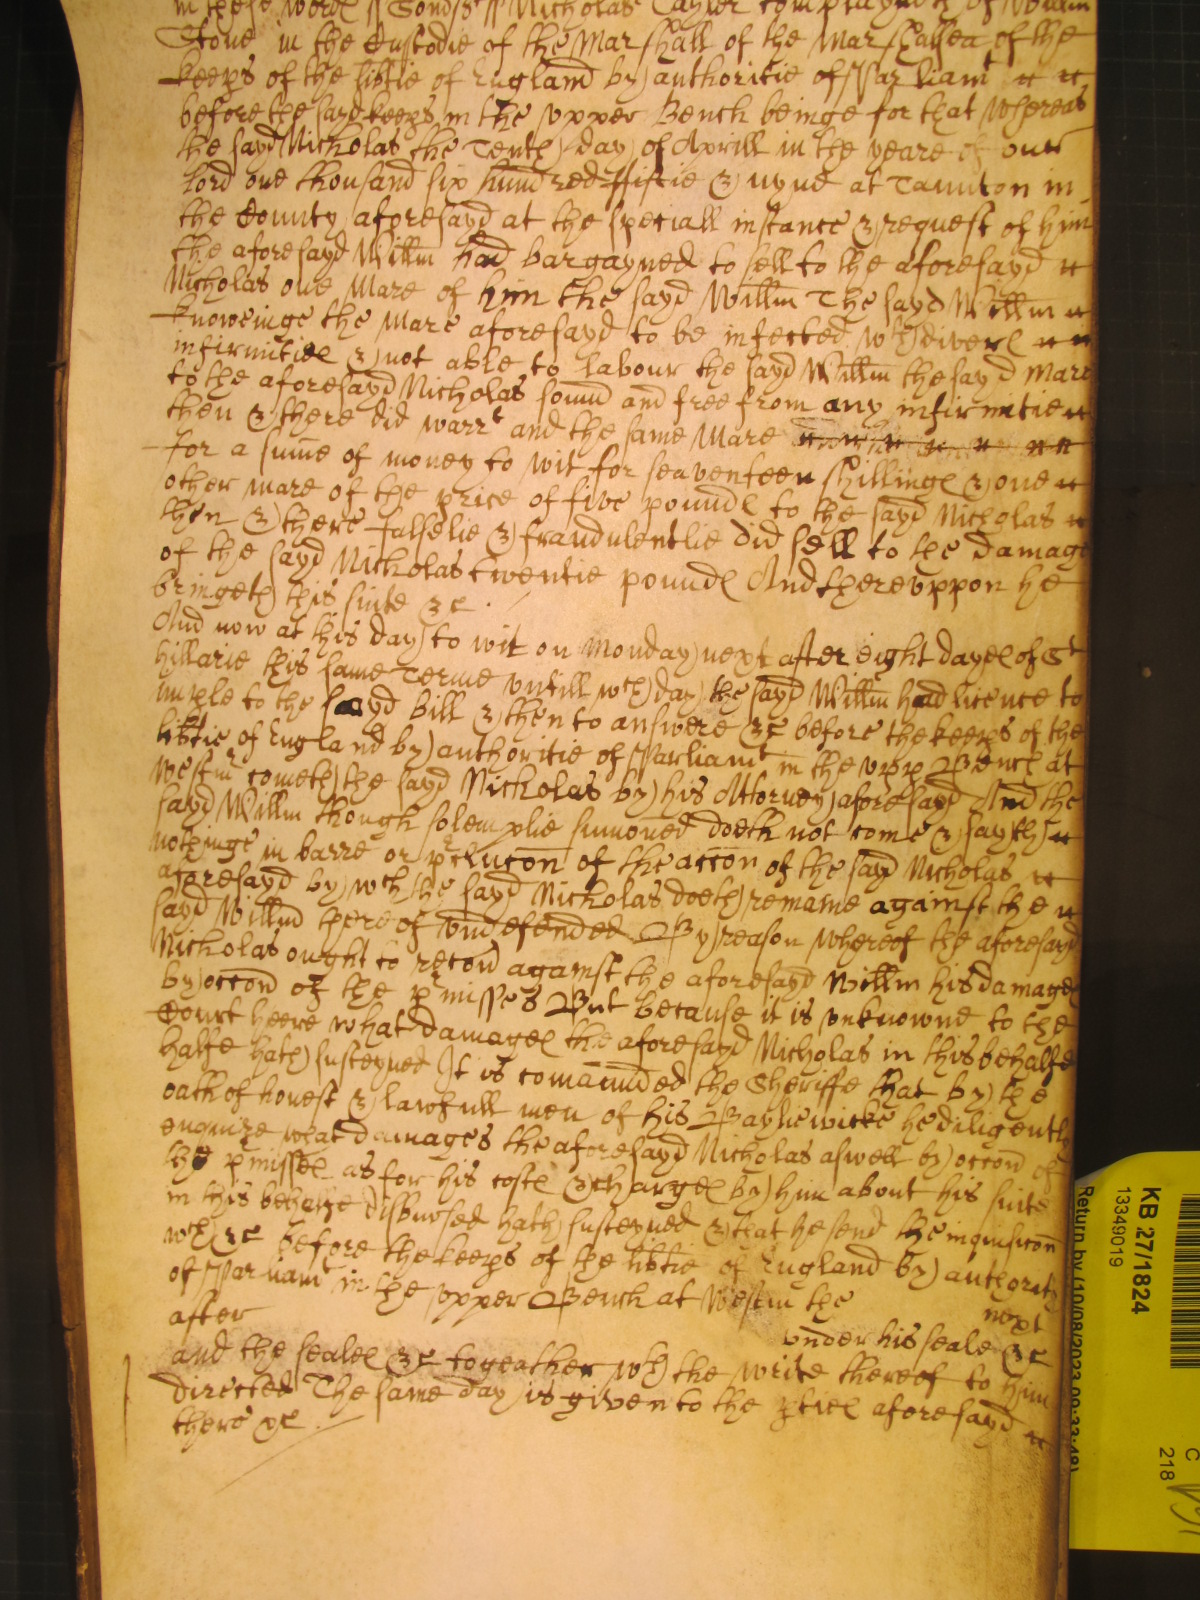 in these words ss Somst ss Nicholas Tayler complayneth of Willm
Stone in the Custodie of the Marshall of the Marshalsea of the
keeps of the libtie of England by authoritie of Parliamt
before the sayd keeps in the upper Bench beinge for that Whereas
the sayd Nicholas the Tenth day of Aprill in the yeare of our
Lord one thousand six hundred Fiftie & nyne at Taunton in
the County aforesayd at the speciall instance & request of him
the aforesayd Willm had bargayned to sell to the aforesayd
Nicholas one Mare of him the sayd Willm The sayd Willm
knoweinge the Mare aforesayd to be infected wth divers
infirmities & not able to labour the sayd Willm the sayd Mare
to the aforesayd Nicholas sound and free from any infirmitie
then & there did warrt and the same Mare
for a sume of money to wit for seaventeen shillings & one
other mare of the price of five pounds to the sayd Nicholas
then & there falselie & fraudulentlie did sell to the damage
of the sayd Nicholas twentie pounds And thereuppon he
bringeth this suite &c
And now at this day to wit on Monday next after eight dayes of St
Hillarie this same Terme untill wch day the sayd Willm had licence to
imple to the sayd bill & then to answere &c before the keeps of the
libtie of England by authoritie of Parliamt in the upp Bench at
Westmr cometh the sayd Nicholas by his Attorney aforesayd And the
sayd Willm though solemplie sumoned doeth not come & sayth
nothinge in barre or pclucon of the accon of the sayd Nicholas
aforesayd by wch the sayd Nicholas doeth remaine against the
sayd Willm thereof undefended By reason whereof the aforesayd
Nicholas ought to recou against the aforesayd Willm his damages
by occon of the pmisses But because it is unknowne to the
Court heere what damages the aforesayd Nicholas in this behalfe
halfe hath susteyned It is comaunded the Sheriffe that by the
oath of honest & lawfull men of his Bayliewicke he diligently
enquire what damages the aforesayd Nicholas aswell by occon of
the pmisses as for his costs & charges by him about his suite
in this behalfe disbursed hath susteyned & that he send the inquisicon
wch &c before the keeps of the libtie of England by authority
of Parliamt in the upper Bench at Westm the next
after under his seale &c
and the seales &c togeather wth the write thereof to him
directed The same day is given to the pties aforesayd
there &c
KB 27/1824
13349019
Return by (10/08/2023 09:33:48)
C
218